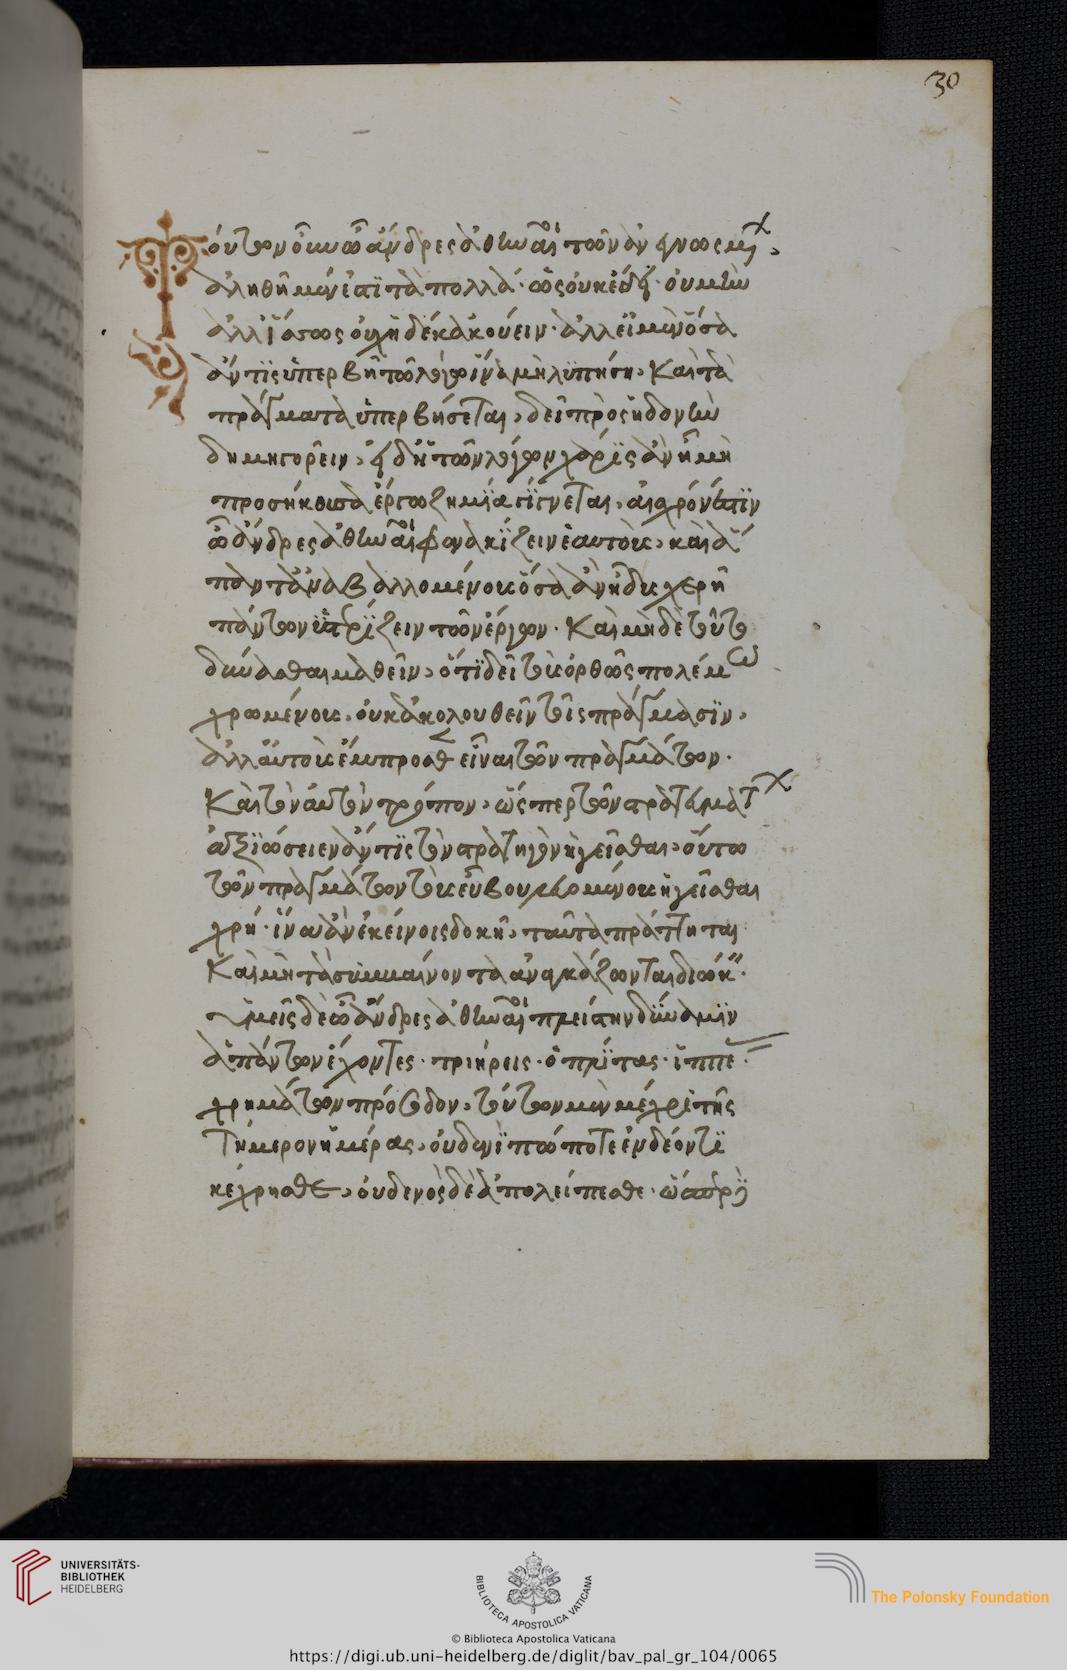 30
Τούτων ὁμοῦ ὦ ἄνδρες ἀθηναῖοι τῶν ἀνεγνωσμ,
ἀληθῆ μέν ἐστϊ τὰ πολλά· ὡς οὐκ ἔδει· οὐ μὴν
ἀλλ' ἴσως οὐχ ἡδέκ' ἀκούειν· ἀλλ' εἰ μὲν ὅσα
ἄν τϊς ὑπερβῆ τῶ λόγω ἵνα μὴ λϋπήση, Καὶ τὰ
πράγματα ὑπερβήσεται, δεῖ πρὸς ἡδονὴν
δημηγορεῖν, εἰ δ' ἡ τῶν λόγων χάρϊς ἂν ἦ μὴ
προσήκουσα ἔργω ζημϊα γίγνεται, αἰσχρόν ἐστϊν
ὦ ἄνδρες ἀθηναῖοι φενακϊζειν ἑαυτοὺς, καὶ ἅ
παντ' ἀναβαλλομένους ὅσα ἂν ἦ δυσχερῆ
πάντων ὑστρϊζειν τῶν ἔργων. Καὶ μηδὲ τοῦτο
δύνασθαι μαθεῖν, ὅτϊ δεῖ τοὺς ὀρθῶς πολέμω
χρωμένους, οὐκ ἀκολουθεῖν τοῖς πράγμασϊν,
ἀλλ' αὐτοὺς ἔμπροσθεν εἶναι τῶν πραγμάτων.
Καὶ τὸν αὐτὸν τρόπον, ὥσπερ τῶν στρατευμάτ
ἀξϊώσειεν ἄν τϊς τὸν στρατηγὸν ἡγεῖσθαι, οὕτω
τῶν πραγμάτων τοὺς εὖ βουλευομένους ἡγεῖσθαι
χρή· ἵν' ἃ ἂν ἐκείνοις δοκῆ, ταῦτα πράττηται
Καὶ μὴ τὰ συμβαίνοντα ἀναγκάζωνται διώκ.
ὑμεῖς δὲ ὦ ἄνδρες ἀθηναῖοι πλείστην δύναμϊν
ἁπάντων ἔχοντες· τριήρεις· ὁπλίτας· ἵππε·
χρημάτων πρόσοδον, τούτων μὲν μέχρι τῆς
τήμερον ἡμέρας, οὐδενὶ πώποτε ἐν δέοντϊ
κέχρησθε, οὐδενὸς δὲ ἀπολείπεσθε· ὥσπερ
UNIVERSITÄTS-
BIBLIOTHEK
HEIDELBERG
BIBLIOTECA APOSTOLICA VATICANA
The Polonsky Foundation
© Biblioteca Apostolica Vaticana
https://digi.ub.uni-heidelberg.de/diglit/bav_pal_gr_104/0065